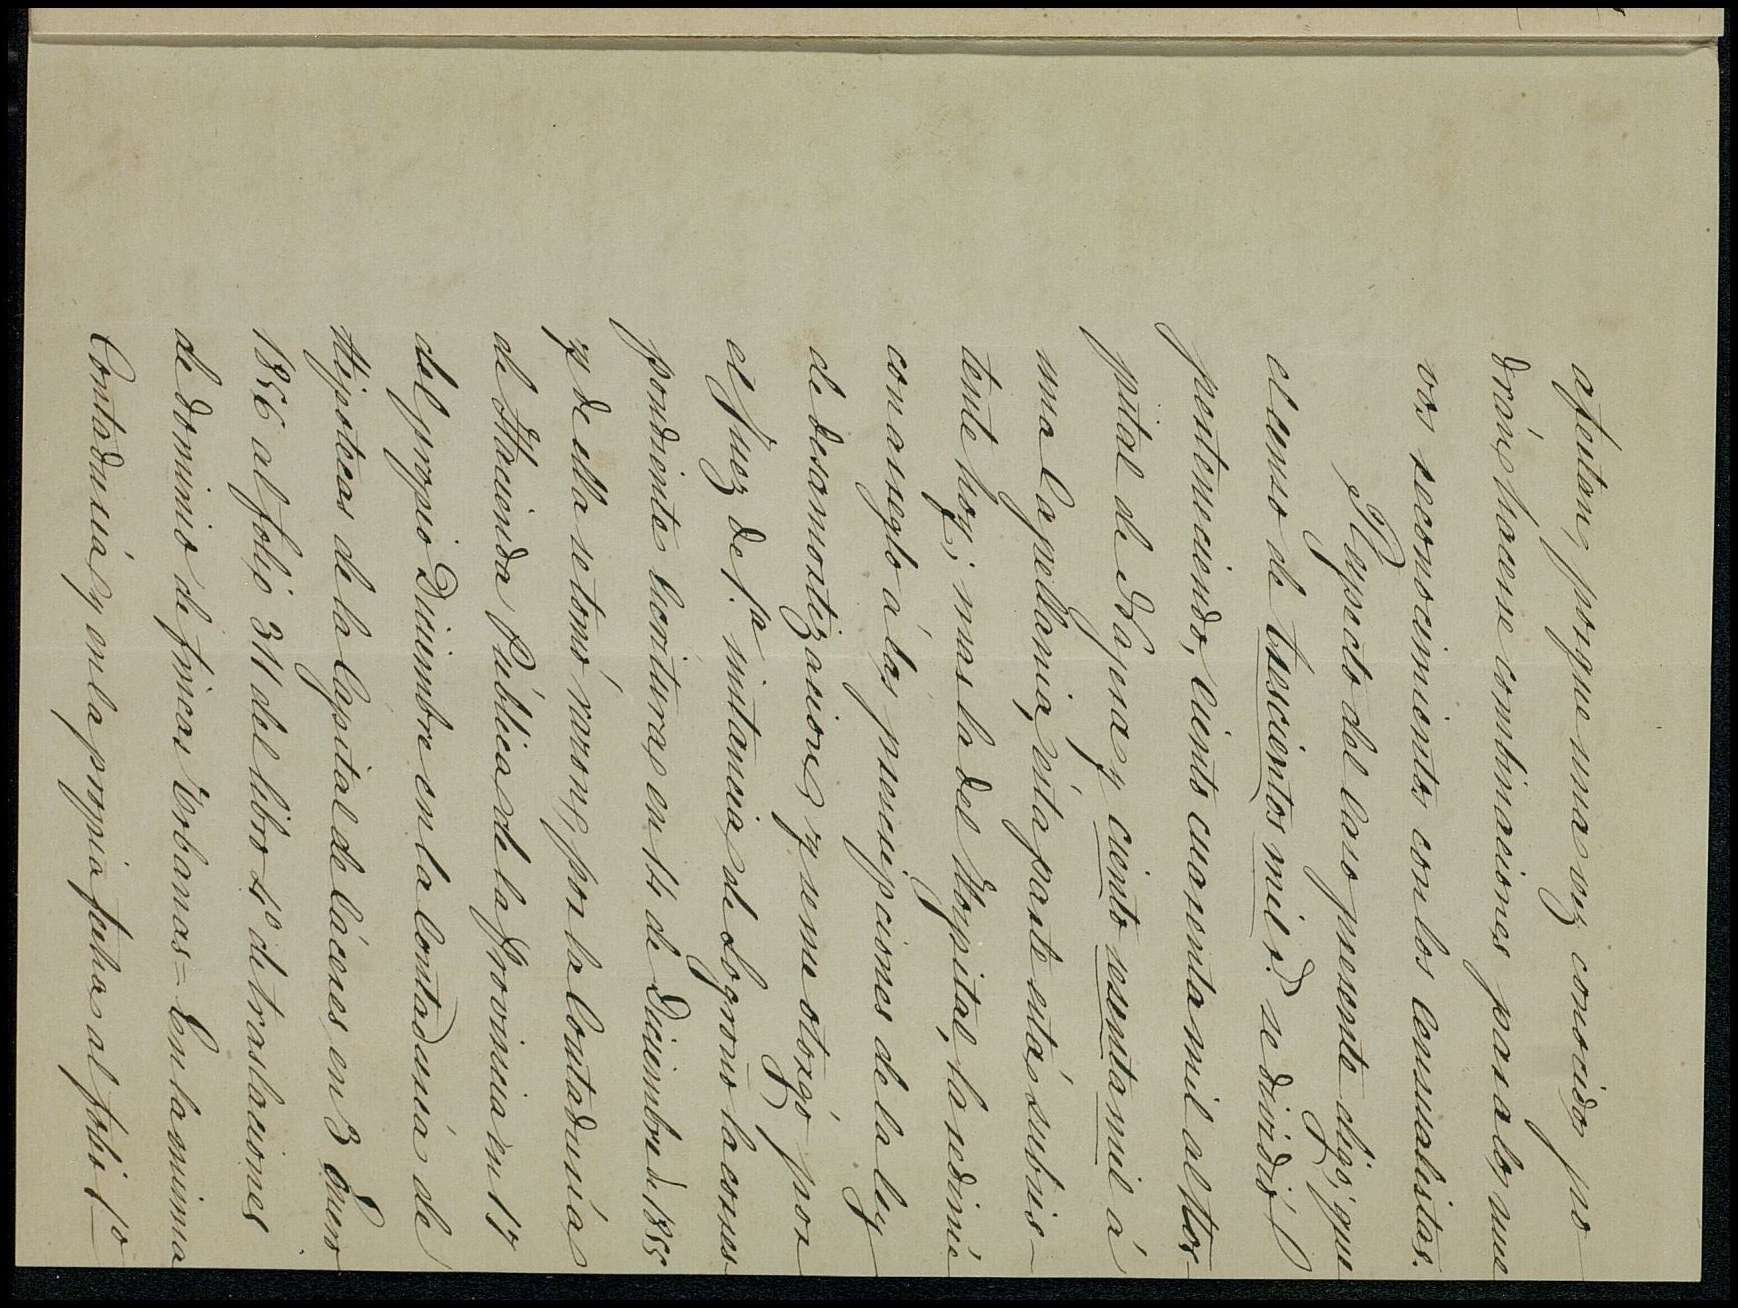 afectan, porque una vez conocidos po-
drán hacerse combinaciones para los nue-
vos reconocimientos con los censualistas.
Respecto del caso presente digo, que
el censo de trescientos mil r.s se dividió
perteneciendo, ciento cuarenta mil al Hos-
pital de Dª. y ciento sesenta mil á
una Capellania, ésta parte está subsis-
tente hoy; mas la del Hospital, la redimí
con arreglo á las prescripciones de la ley
de desamortizacion, y se me otorgó por
el Juez de 1ª. instancia de Logroño la corres-
pondiente Escritura en 14 de Diciembre de 1855
y de ella se tomó razon, por la Contaduría
de Hacienda Pública de la Provincia en 17
del propio Diciembre en la Contaduría de
Hipotecas de la Capital de Cáceres en 3 Enero
1856 al folio 311 del libro 4º de traslaciones
de dominio de fincas Urbanas = En la misma
Contaduría y en la propia fecha al folio 1º